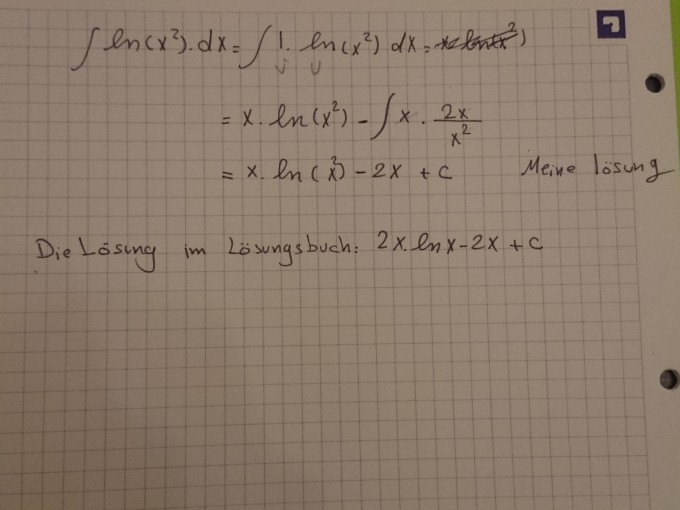 ∫ ln(x²).dx = ∫ 1. ln(x²) dx =
= x. ln(x²) - ∫ x . 2x/x²
= x. ln(x²) - 2x + c Meine lösung
Die Lösung im Lösungsbuch: 2x.ln x - 2x + c